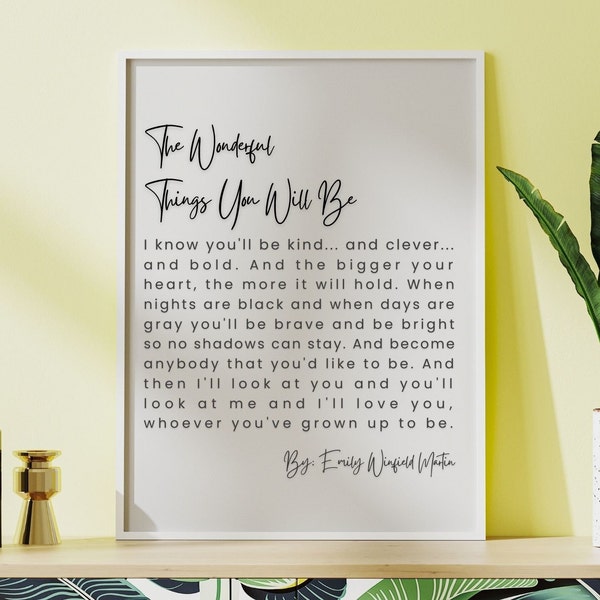 The Wonderful
Things You Will Be
I know you'll be kind... and clever...
and bold. And the bigger your
heart, the more it will hold. When
nights are black and when days are
gray you'll be brave and be bright
so no shadows can stay. And become
anybody that you'd like to be. And
then I'll look at you and you'll
look at me and I'll love you,
whoever you've grown up to be.
By: Emily Winfield Martin